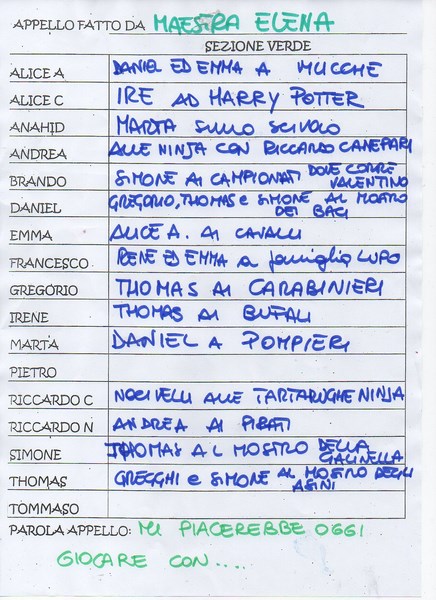 APPELLO FATTO DA MAESTRA ELENA
SEZIONE VERDE
ALICE A DANIEL ED EMMA A MUCCHE
ALICE C IRE AD HARRY POTTER
ANAHID MARTA SULLO SCIVOLO
ANDREA ALLE NINJA CON RICCARDO CANEPARI
BRANDO SIMONE AI CAMPIONATI DOVE CORRE VALENTINO
DANIEL GREGORIO, THOMAS e SIMONE AL MOSTRO DEI BACI
EMMA ALICE A. AI CAVALLI
FRANCESCO RENE ED EMMA a famiglia LUPO
GREGORIO THOMAS AI CARABINIERI
IRENE THOMAS AI BUFALI
MARTA DANIEL A POMPIERI
PIETRO
RICCARDO C NOCIVELLI ALLE TARTARUGHE NINJA
RICCARDO N ANDREA AI PIRATI
SIMONE THOMAS AL MOSTRO DELLA GALLINELLA
THOMAS GREGGHI e SIMONE AL MOSTRO DEGLI ASINI
TOMMASO
PAROLA APPELLO: MI PIACEREBBE OGGI
GIOCARE CON....